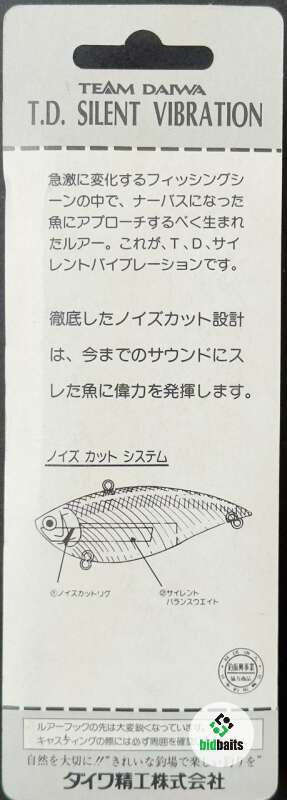 TEAM DAIWA
T.D. SILENT VIBRATION
急激に変化するフィッシングシ
ーンの中で、ナーバスになった
魚にアプローチするべく生まれ
たルアー。これが、T、D、サイ
レントバイブレーションです。
徹底したノイズカット設計
は、今までのサウンドにス
レた魚に偉力を発揮します。
ノイズ カット システム
①ノイズカットリグ
②サイレント
バランスウエイト
ルアーフックの先は大変鋭くなっていま
キャスティングの際には必ず周囲を確
bidbaits
自然を大切に!!"きれいな釣場で楽し
ダイワ精工株式会社